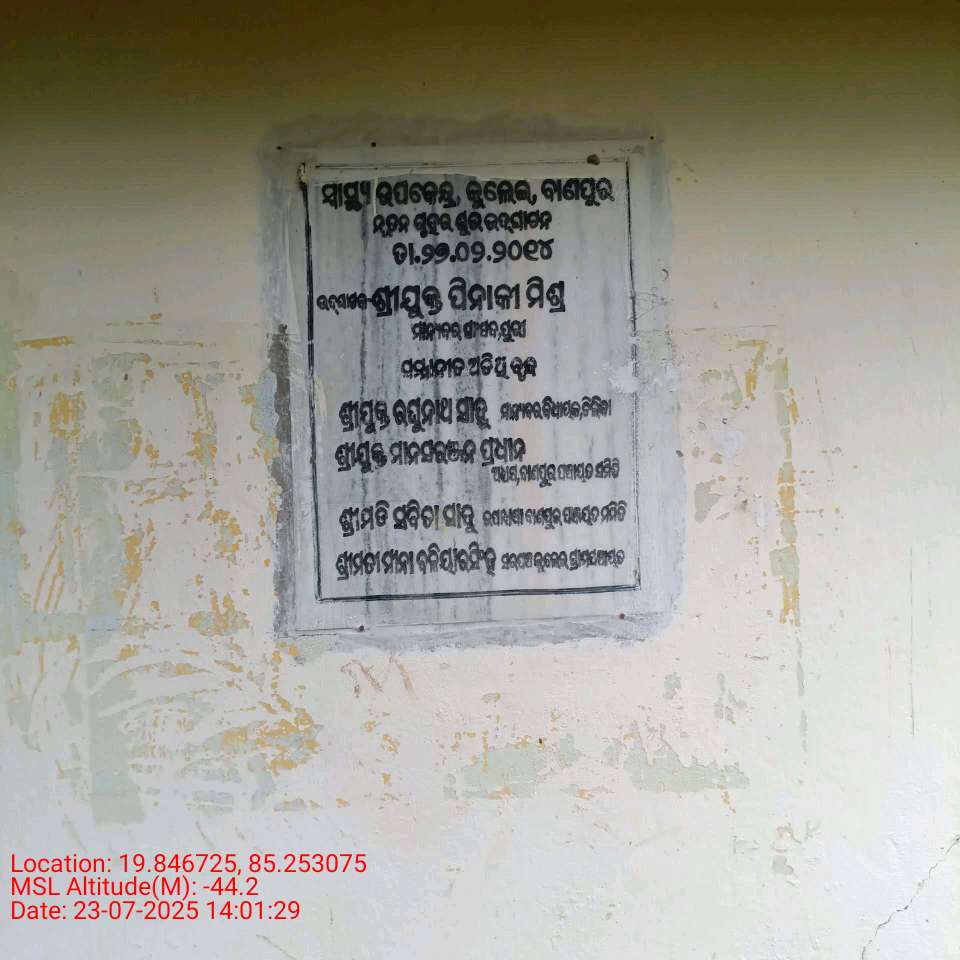 ସ୍ୱାସ୍ଥ୍ୟ ଉପକେନ୍ଦ୍ର, କୁଲେଇ, ବାଣପୁର
ନୂତନ ଗୃହର ଶୁଭ ଉଦ୍‌ଘାଟନ
ତା.୨୭.୦୨.୨୦୧୪
ଉଦ୍‌ଘାଟକ-ଶ୍ରୀଯୁକ୍ତ ପିନାକୀ ମିଶ୍ର
ମାନ୍ୟବର ସାଂସଦ,ପୁରୀ
ସମ୍ମାନୀତ ଅତିଥି ବୃନ୍ଦ
ଶ୍ରୀଯୁକ୍ତ ରଘୁନାଥ ସାହୁ ମାନ୍ୟବର ବିଧାୟକ,ଚିଲିକା
ଶ୍ରୀଯୁକ୍ତ ମାନସରଞ୍ଜନ ପ୍ରଧାନ
ଅଧ୍ୟକ୍ଷ,ବାଣପୁର ପଞ୍ଚାୟତ ସମିତି
ଶ୍ରୀମତି ସବିତା ସାହୁ ଉପାଧ୍ୟକ୍ଷା ବାଣପୁର ପଞ୍ଚାୟତ ସମିତି
ଶ୍ରୀମତୀ ମୀନା ବଳିୟାରସିଂହ ସରପଞ୍ଚ କୁଲେଇ ଗ୍ରାମପଞ୍ଚାୟତ
Location: 19.846725, 85.253075
MSL Altitude(M): -44.2
Date: 23-07-2025 14:01:29